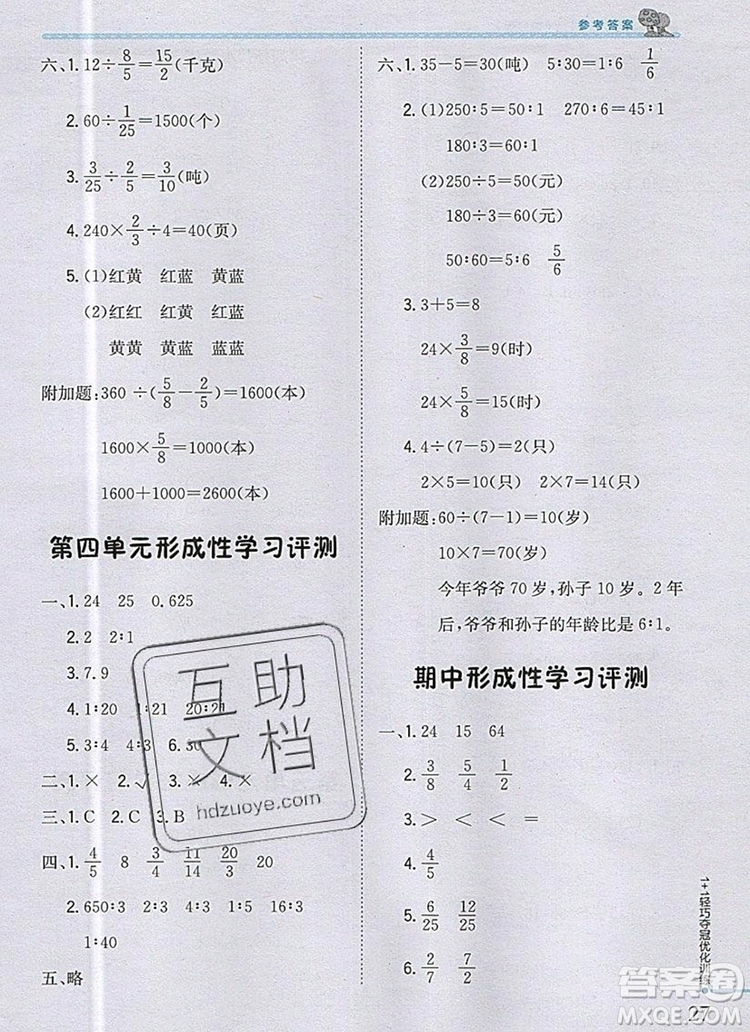 参考答案
六、1. 12÷8/5=15/2(千克)
2. 60÷1/25=1500(个)
3. 3/25÷2/5=3/10(吨)
4. 240×2/3÷4=40(页)
5. (1)红黄 红蓝 黄蓝
(2)红红 红黄 红蓝
黄黄 黄蓝 蓝蓝
附加题:360÷(5/8-2/5)=1600(本)
1600×5/8=1000(本)
1600+1000=2600(本)
第四单元形成性学习评测
一、1. 24 25 0.625
2. 2 2∶1
3. 7.9
4. 1∶20 1∶21 20∶21
5. 3∶4 4∶3 6. 30
二、1. × 2. √ 3. × 4. ×
三、1. C 2. C 3. B
四、1. 4/5 8 3/4 11/14 20/3 20
2. 650∶3 2∶1 3∶2 3∶10
1∶40
五、略
六、1. 35-5=30(吨) 5∶30=1∶6 1/6
2. (1)250∶5=50∶1 270∶6=45∶1
180∶3=60∶1
(2)250÷5=50(元)
180÷3=60(元)
50∶60=5∶6 5/6
3. 3+5=8
24×3/8=9(时)
24×5/8=15(时)
4. 4÷(7-5)=2(只)
2×5=10(只) 2×7=14(只)
附加题:60÷(7-1)=10(岁)
10×7=70(岁)
今年爷爷 70 岁,孙子 10 岁。2 年
后,爷爷和孙子的年龄比是 6∶1。
期中形成性学习评测
一、1. 24 15 64
2. 3/8 5/4 1/2
3. > < < =
4. 4/5
5. 6/25 12/25
6. 2/7 2/7
1+1轻巧夺冠优化训练
27
互助
文档
hdzuoye.com
答案圈
MXQE.COM